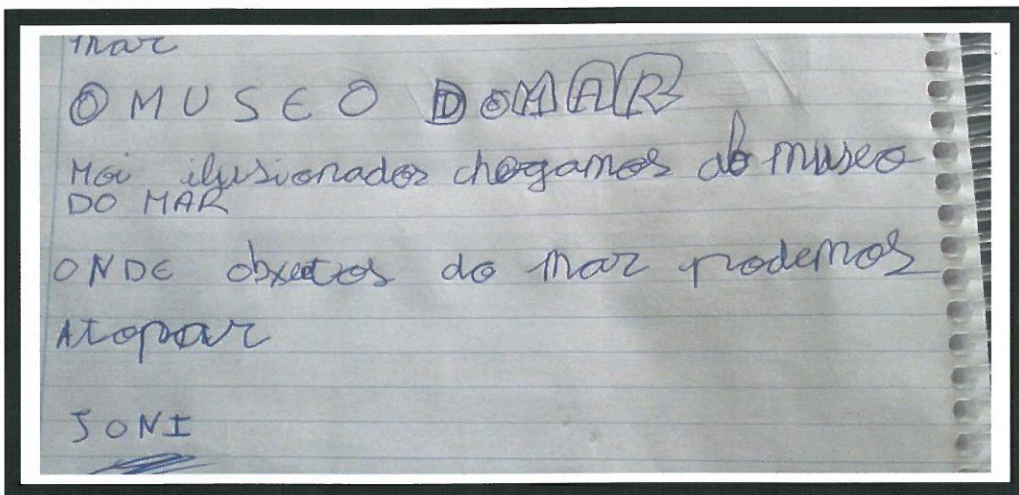 mar
O MUSEO DO MAR
Moi ilusionados chegamos ao museo
DO MAR
ONDE obxectos do mar podemos
Atopar
JONI